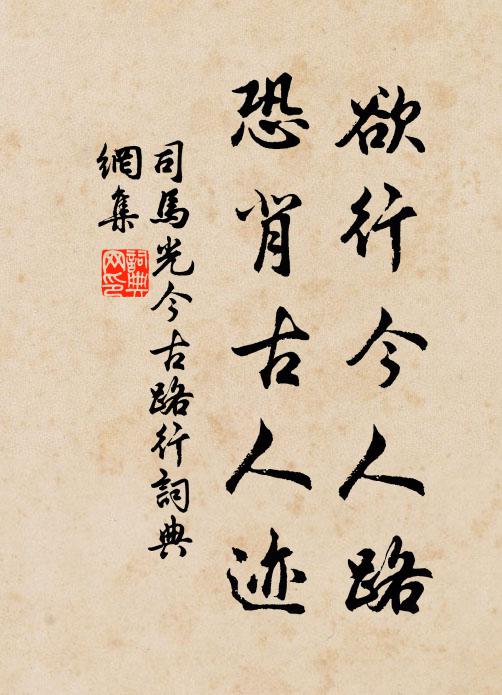 欲行今人路
恐背古人迹
司馬光今古路行詞典
網集
詞典网印